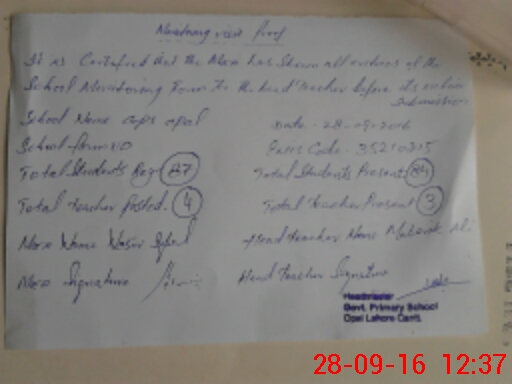 Monitoring visit Proof
It is Certified that the Mea has shown all entries of the
School Monitoring Form to the head Teacher before its online
Submission
School Name Gps Opal
Date - 28-09-2016
School form NO
Emis Code - 35210315
Total Students Reg 87
Total Students Present 84
Total Teacher Posted. 4
Total Teacher Present 3
Mea Name Wasir
Head teacher Name Mubarik Ali
Mea Signature
Head Teacher Signature
Headmaster
Govt. Primary School
Opal Lahore Cantt.
28-09-16 12:37